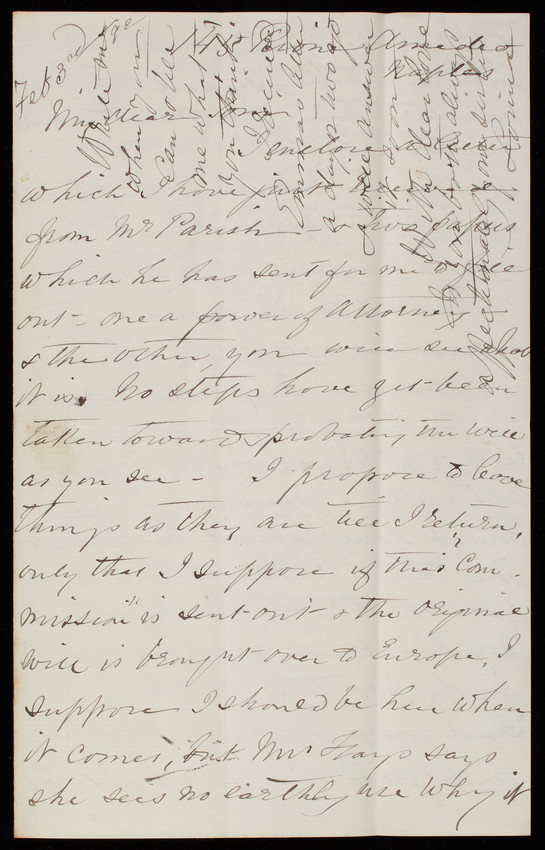 Feb 3rd
Naples
My dear Tom
I enclose a letter
which I have just received
from Mr Parish - & two papers
which he has sent for me to file
out - one a power of Attorney
& the other, you will see what
it is. No steps have yet been
taken toward probating the will
as you see - I propose to leave
things as they are till I return,
only that I suppose if this "Com-
mission" is sent out & the original
will is brought over to Europe, I
suppose I should be here when
it comes, but Mrs Hays says
she sees no earthly use why it
Write me
when you
can & tell
me what
you
I
a days
you will answer
it soon
With dear love
to you both
affectionately your